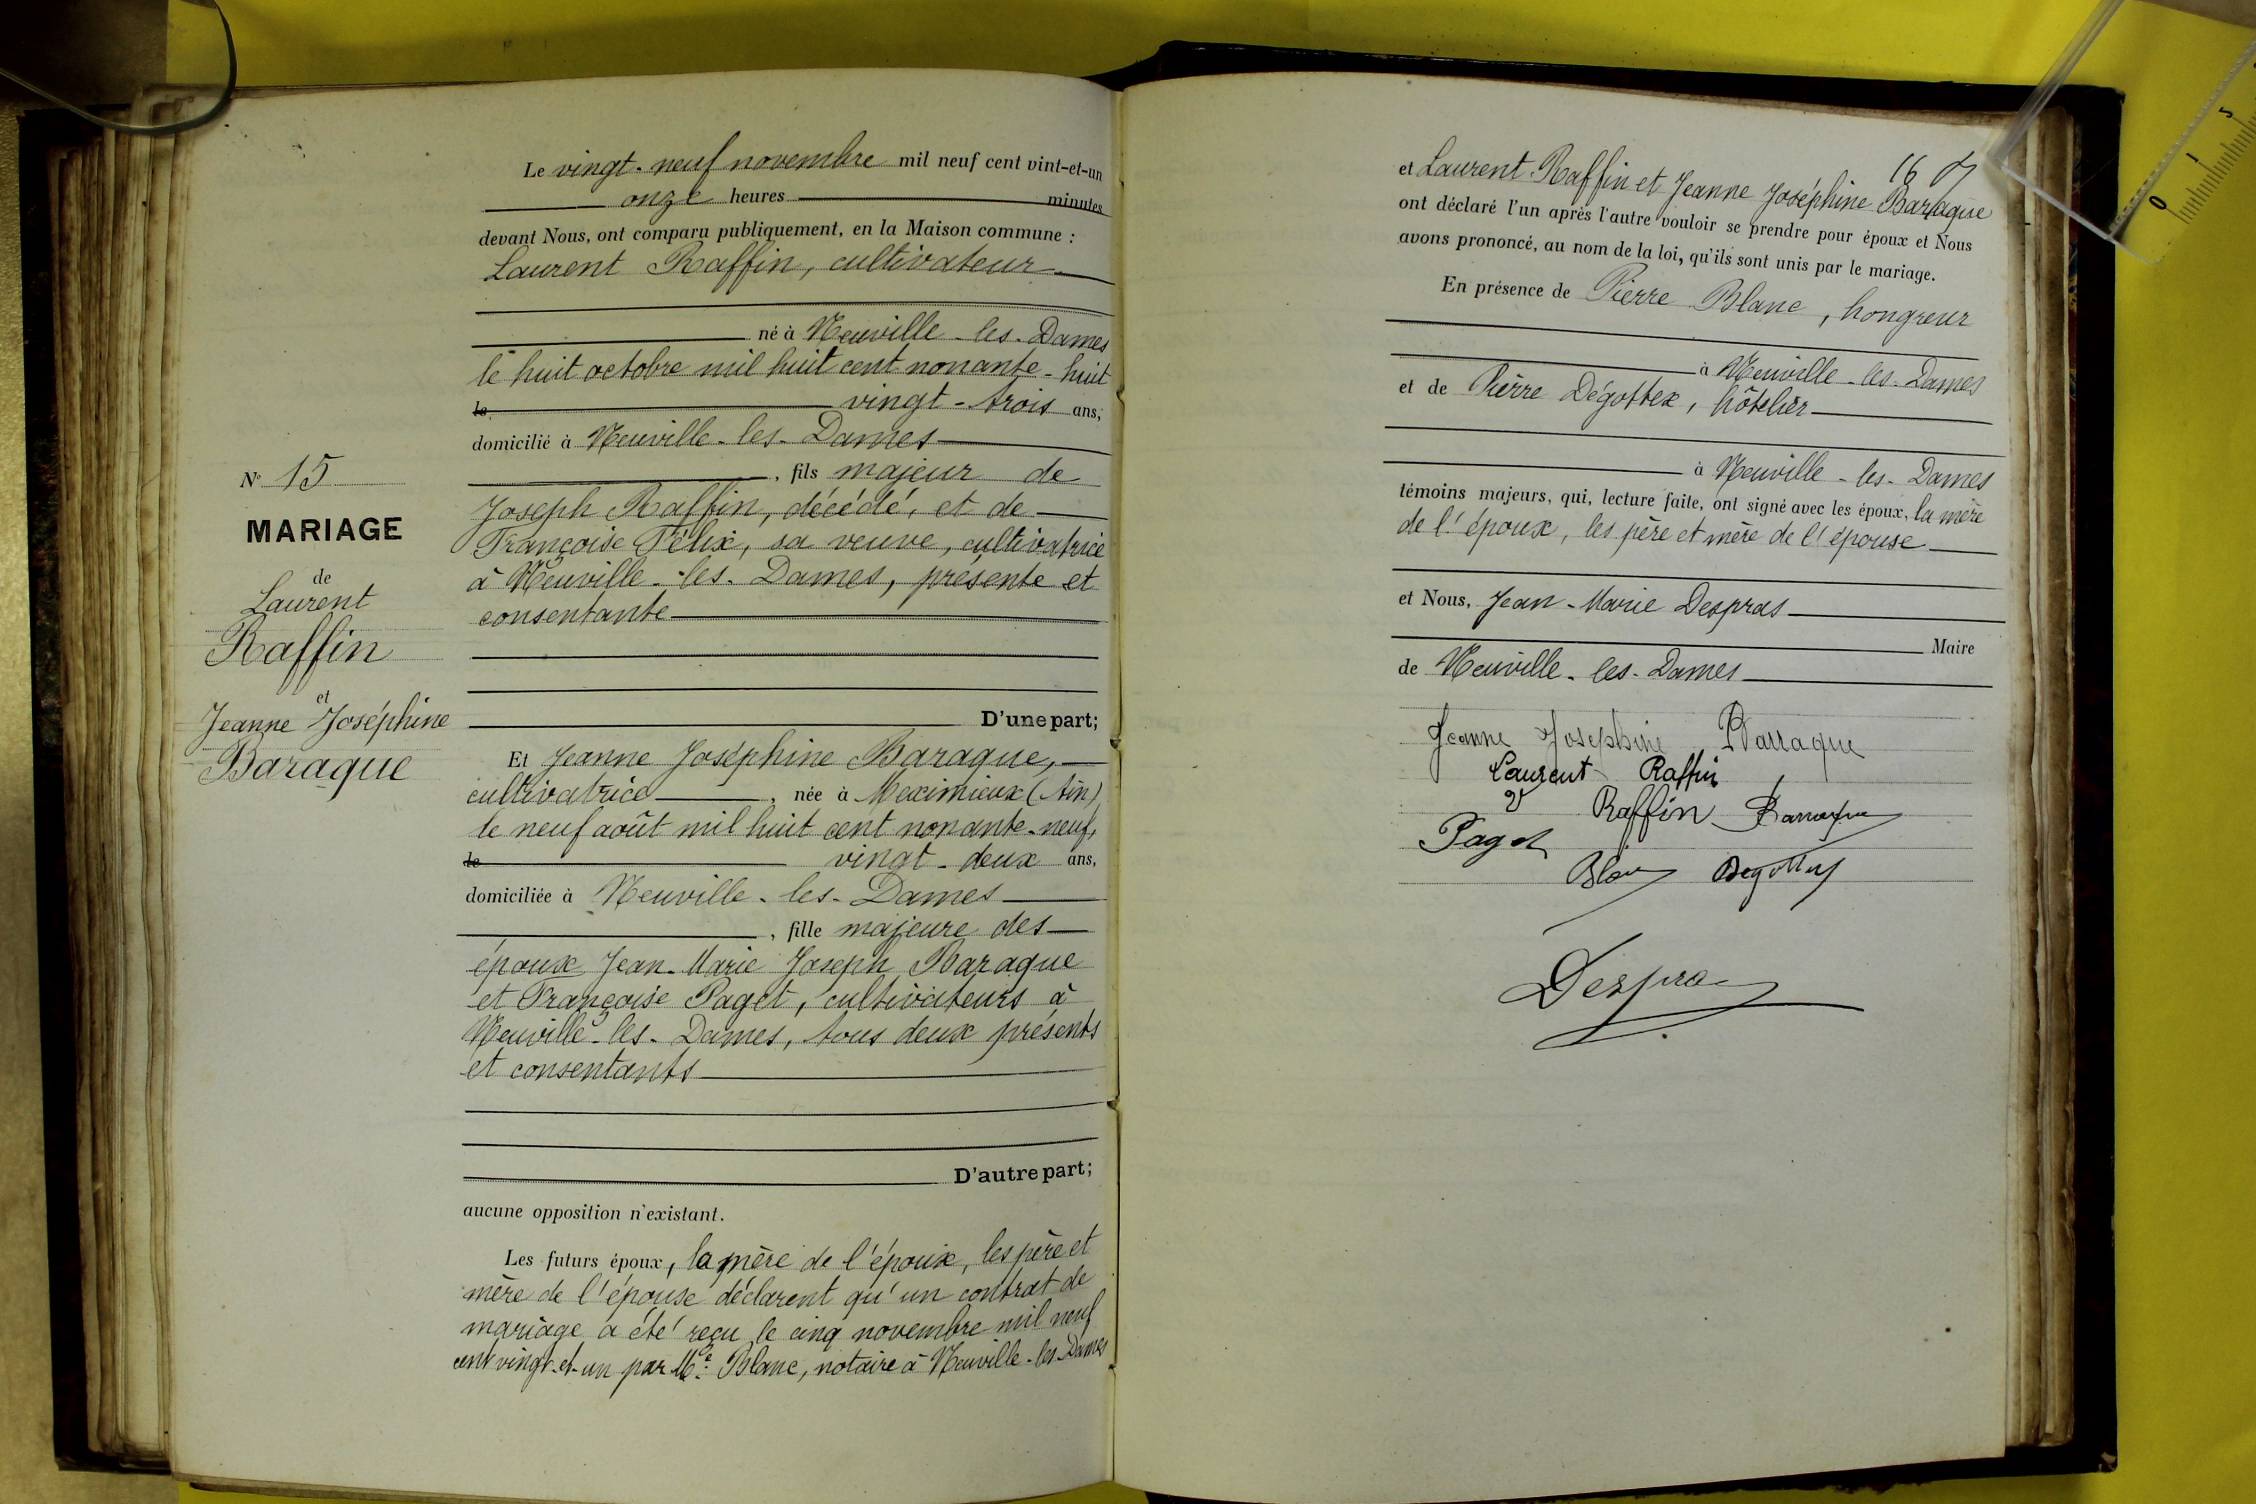 Le vingt-neuf novembre mil neuf cent vint-et-un
onze heures minutes
devant Nous, ont comparu publiquement, en la Maison commune :
Laurent Raffin, cultivateur
né à Neuville-les-Dames
le huit octobre mil huit cent nonante-huit
le vingt-trois ans,
domicilié à Neuville-les-Dames
, fils majeur de
Joseph Raffin, décédé, et de
Françoise Félix, sa veuve, cultivatrice
à Neuville-les-Dames, présente et
consentante
D'une part;
N° 15
MARIAGE
de
Laurent
Raffin
et
Jeanne Joséphine
Baraque
Et Jeanne Joséphine Baraque,
cultivatrice, née à Meximieux (Ain)
le neuf août mil huit cent nonante-neuf,
le vingt-deux ans,
domiciliée à Neuville-les-Dames
, fille majeure des
époux Jean-Marie Joseph Baraque
et Françoise Paget, cultivateurs à
Neuville-les-Dames, tous deux présents
et consentants
D'autre part;
aucune opposition n'existant.
Les futurs époux, la mère de l'époux, les père et
mère de l'épouse déclarent qu'un contrat de
mariage a été reçu le cinq novembre mil neuf
cent vingt-et-un par Me Blanc, notaire à Neuville-les-Dames
16
et Laurent Raffin et Jeanne Joséphine Baraque
ont déclaré l'un après l'autre vouloir se prendre pour époux et Nous
avons prononcé, au nom de la loi, qu'ils sont unis par le mariage.
En présence de Pierre Blanc, hongreur
à Neuville-les-Dames
et de Pierre Dégottex, hôtelier
à Neuville-les-Dames
témoins majeurs, qui, lecture faite, ont signé avec les époux, la mère
de l'époux, les père et mère de l'épouse
et Nous, Jean-Marie Despras
Maire
de Neuville-les-Dames
Jeanne Josephine Barraque
Laurent Raffin
Raffin Barraque
Paget
Blanc Degottex
Despras
0 1 5